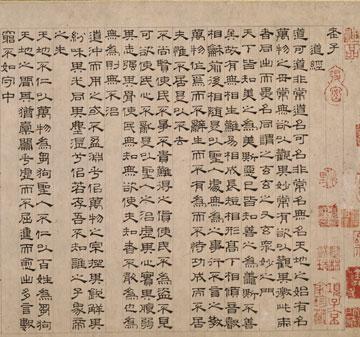 老子
道經
道可道非常道名可名非常名無名天地之始有名
萬物之母常無欲以觀其妙常有欲以觀其徼此兩
者同出而異名同謂之玄玄之又玄眾妙之門
天下皆知美之為美斯惡已皆知善之為善斯不善
矣故有無相生難易相成長短相形高下相傾音聲
相和前後相隨是以聖人處無為之事行不言之教
萬物作焉而不辭生而不有為而不恃功成而不居
夫惟不居是以不去
不尚賢使民不爭不貴難得之貨使民不為盜不見
可欲使民心不亂是以聖人之治虛其心實其腹弱
其志強其骨常使民無知無欲使夫知者不敢為也為
無為則無不治
道沖而用之或不盈淵兮似萬物之宗挫其銳解其
紛和其光同其塵湛兮似若存吾不知誰之子象帝
之先
天地不仁以萬物為芻狗聖人不仁以百姓為芻狗
天地之間其猶橐籥乎虛而不屈動而愈出多言數
窮不如守中